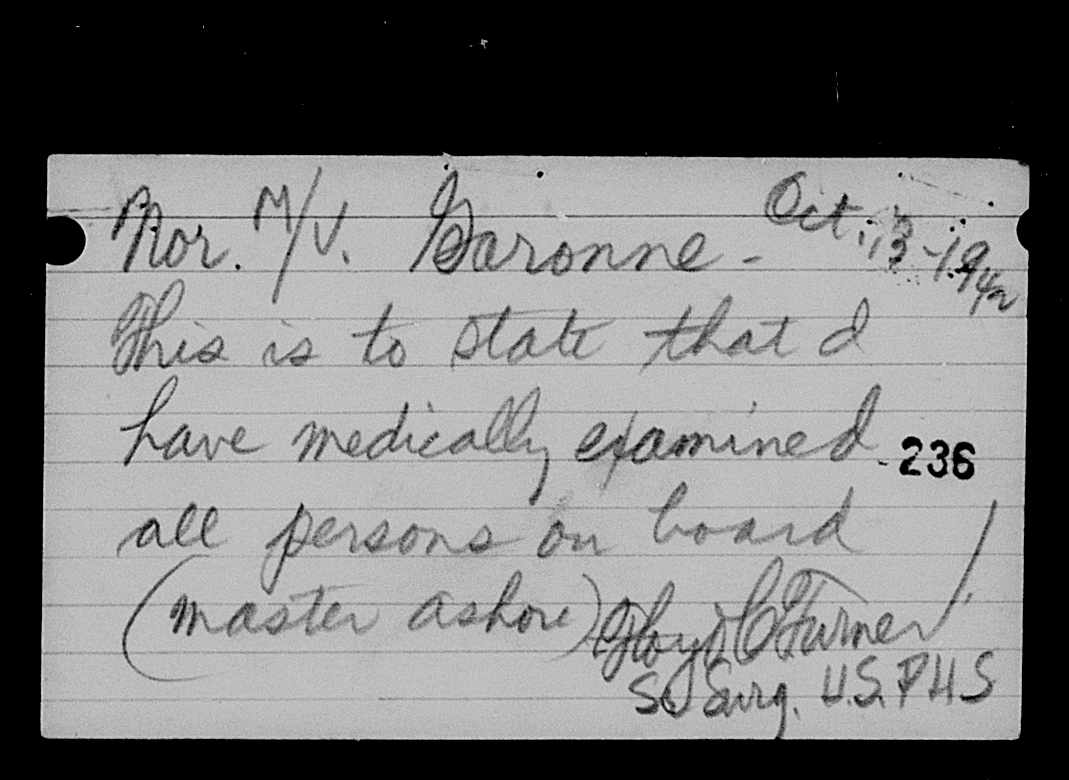 Nor. M/V. Garonne - Oct. 13-1942
This is to state that I
have medically examined
236
all persons on board
(master ashore) Floyd C Turner
Surg. U.S.P.H.S